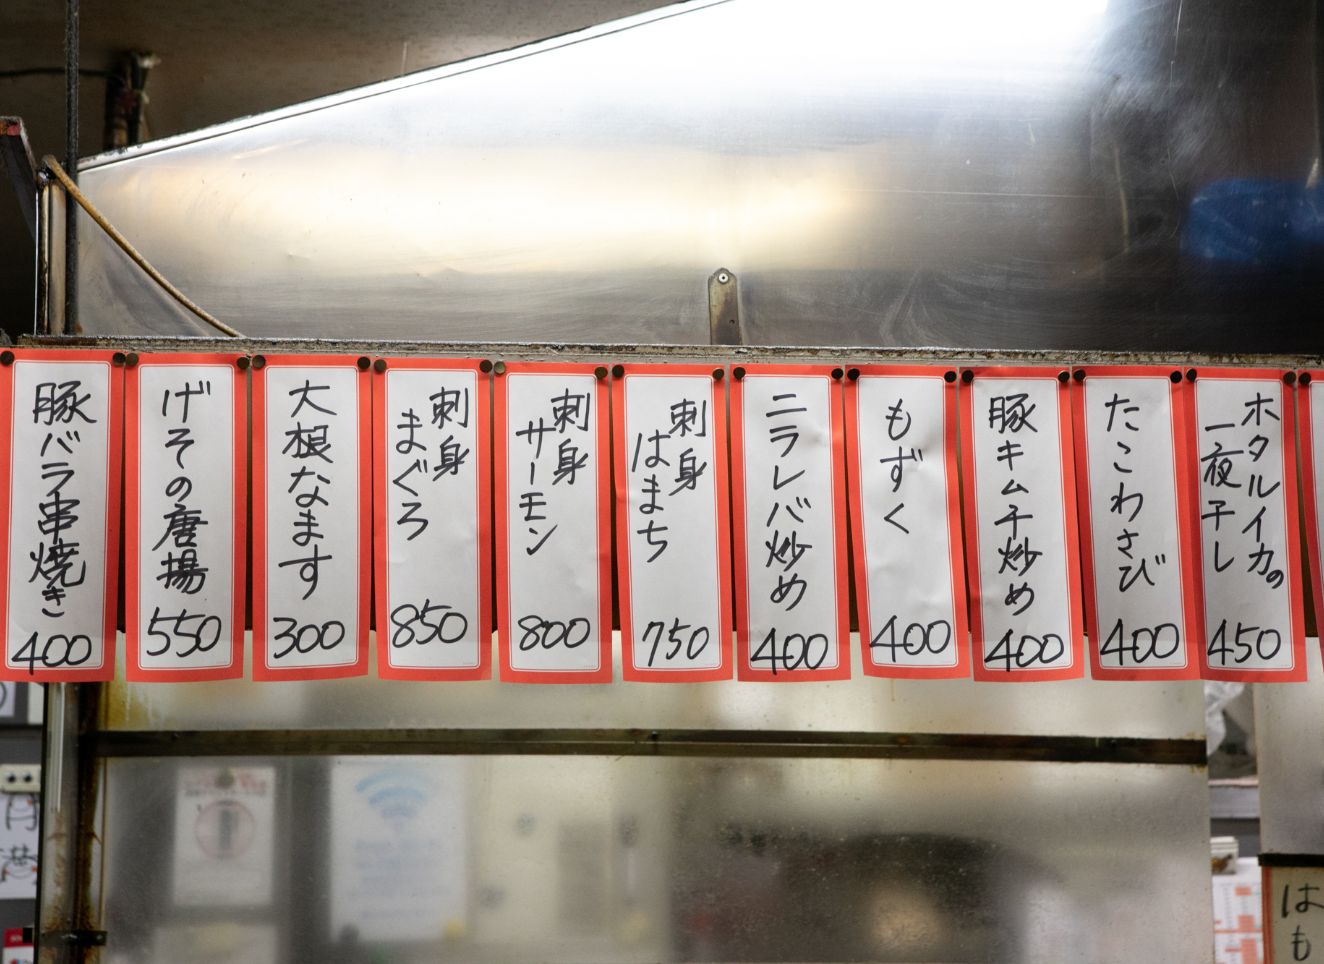 豚バラ串焼き
400
げその唐揚
550
大根なます
300
刺身
まぐろ
850
刺身
サーモン
800
刺身
はまち
750
ニラレバ炒め
400
もずく
400
豚キムチ炒め
400
たこわさび
400
ホタルイカの
一夜干し
450
はも